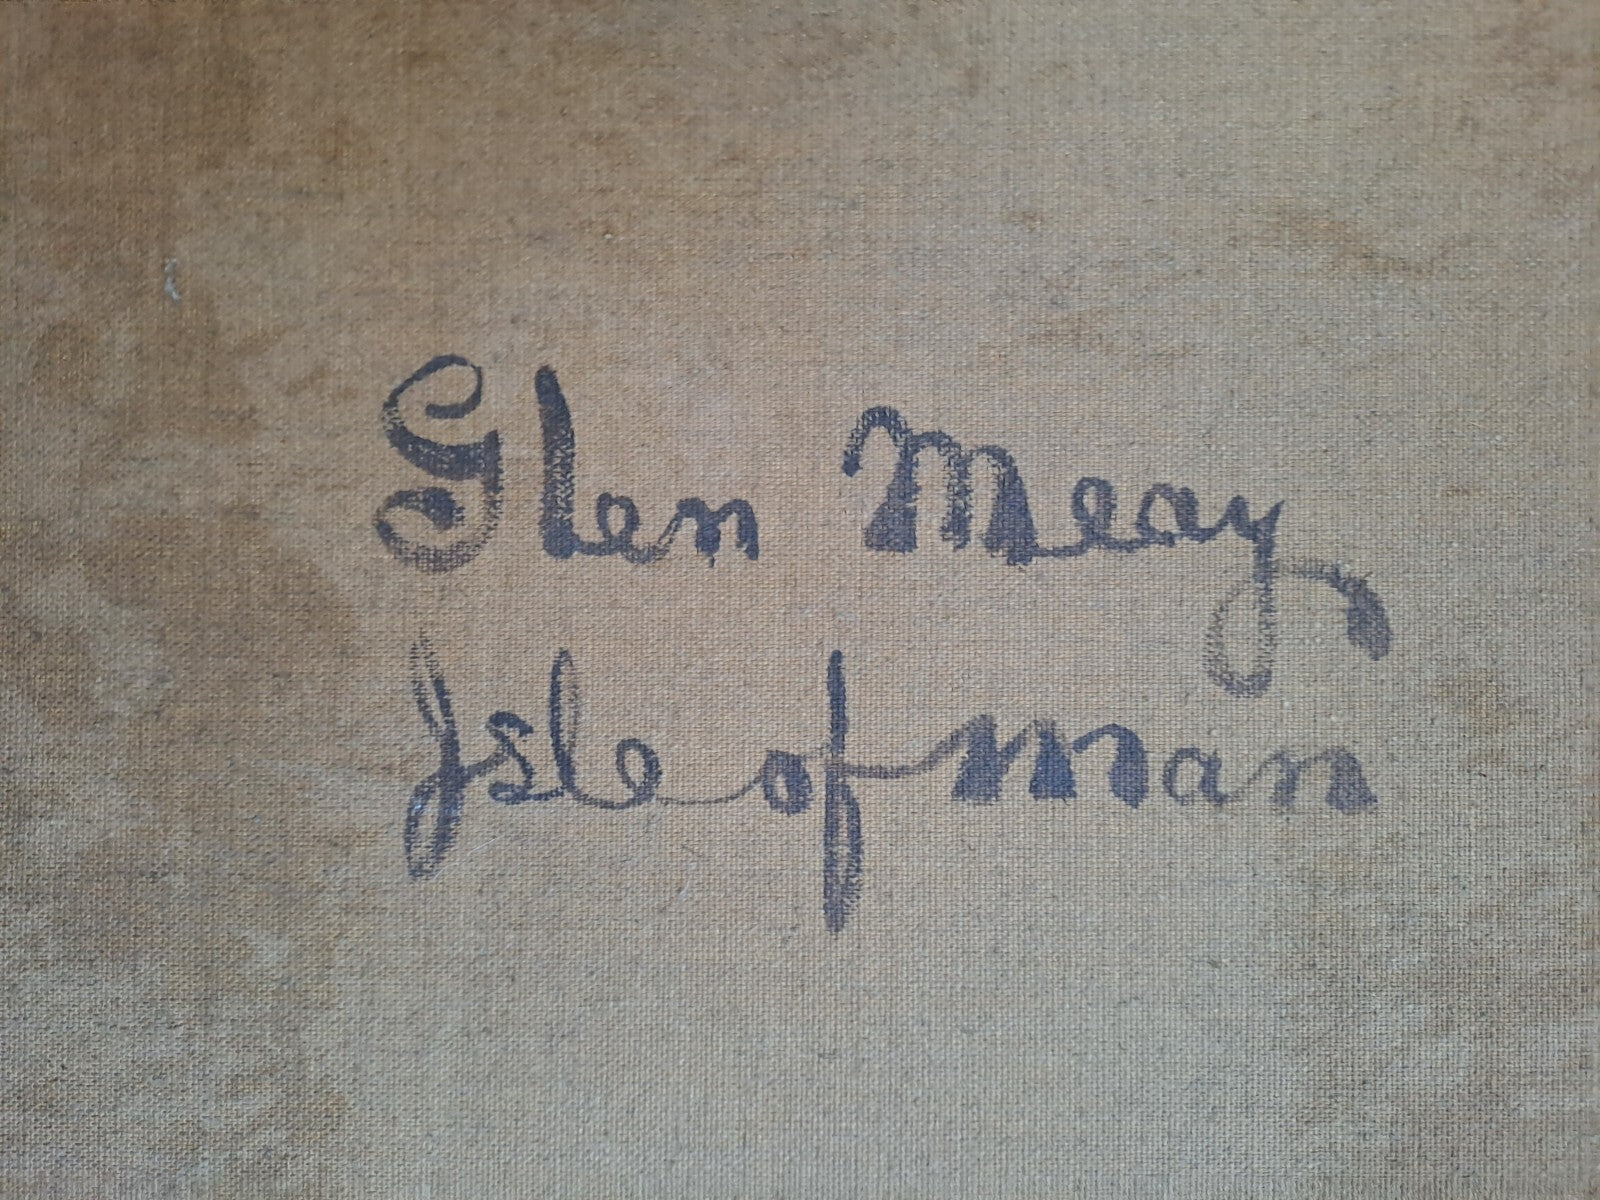 Glen Meay
Isle of man